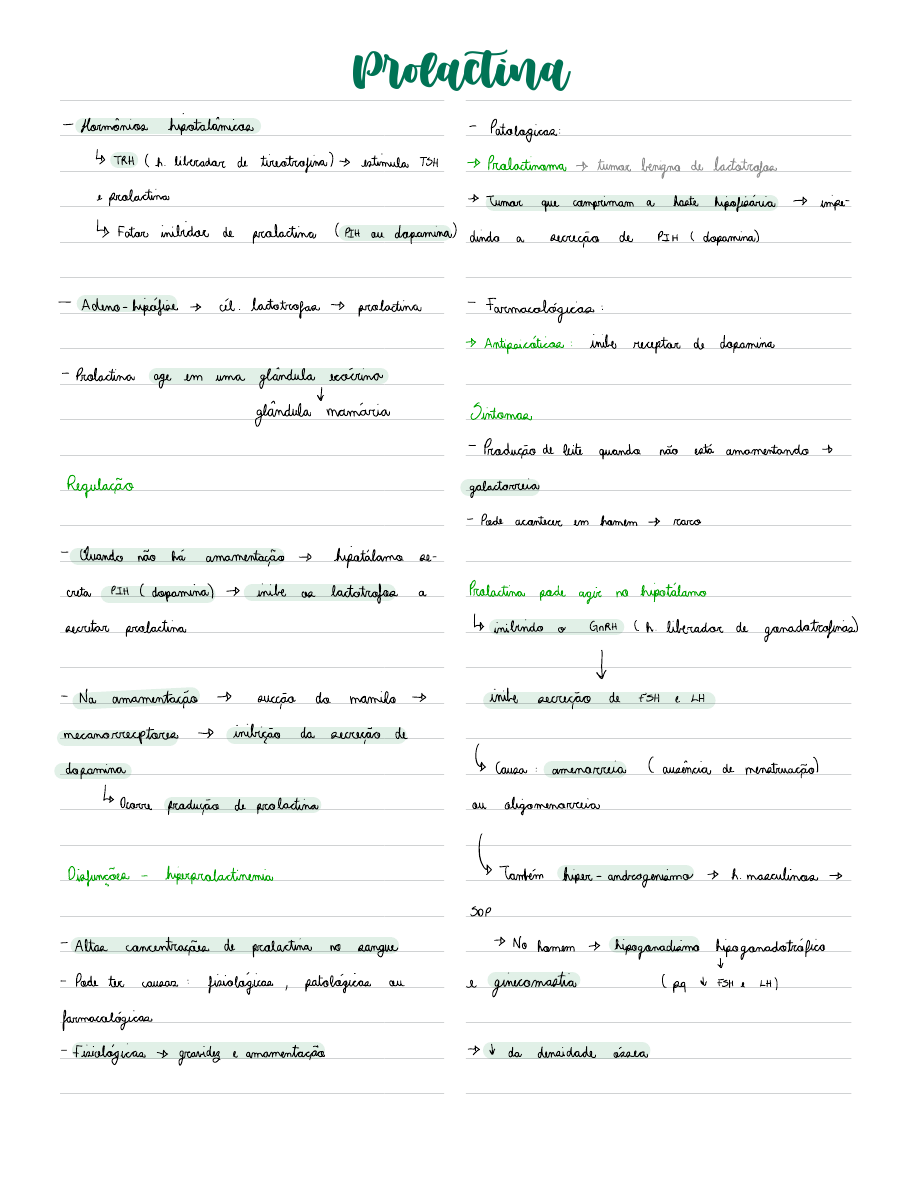 Prolactina
- Hormônios hipotalâmicos
↳ TRH (h. liberador de tireotrofina) → estimula TSH
e prolactina
↳ Fator inibidor de prolactina (PIH ou dopamina)
- Adeno-hipófise → cél. lactotrofas → prolactina
- Prolactina age em uma glândula exócrina
↓
glândula mamária
Regulação
- Quando não há amamentação → hipotálamo se-
creta PIH (dopamina) → inibe os lactotrofos a
secretar prolactina
- Na amamentação → sucção do mamilo →
mecanorreceptores → inibição da secreção de
dopamina
↳ Ocorre produção de prolactina
Disfunções - hiperprolactinemia
- Altas concentrações de prolactina no sangue
- Pode ter causas: fisiológicas, patológicas ou
farmacológicas
- Fisiológicas → gravidez e amamentação
- Patológicas:
→ Prolactinoma → tumor benigno de lactotrofos
→ Tumor que comprimam a haste hipofisária → impe-
dindo a secreção de PIH (dopamina)
- Farmacológicas:
→ Antipsicóticos: inibe receptor de dopamina
Sintomas
- Produção de leite quando não está amamentando →
galactorreia
- Pode acontecer em homem → raro
Prolactina pode agir no hipotálamo
↳ inibindo o GnRH (h liberador de gonadotrofinas)
↓
inibe secreção de FSH e LH
↳ Causa: amenorreia (ausência de menstruação)
ou oligomenorreia
↳ Também hiper-androgenismo → h. masculinos →
SOP
→ No homem → hipogonadismo hipogonadotrófico
↓
e ginecomastia (pq ↓ FSH e LH)
→ ↓ da densidade óssea